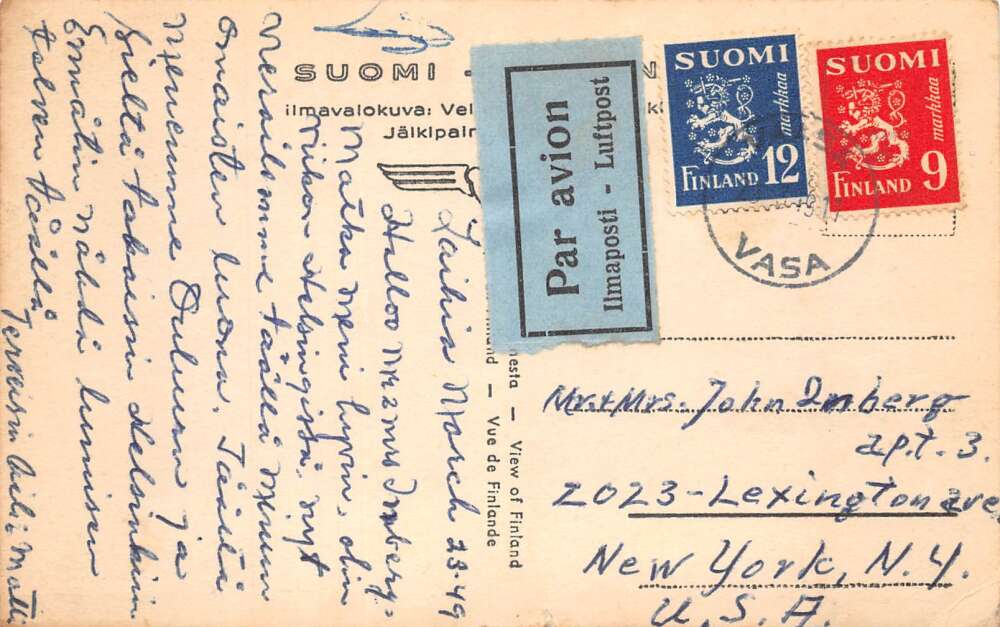 SUOMI -
ilmavalokuva: Vel
Jälkipain
Par avion
Ilmaposti - Luftpost
SUOMI
markkaa
FINLAND 12
SUOMI
markkaa
FINLAND 9
VASA
nesta — View of Finland
inland — Vue de Finlande
Laihia March 23-49
Halloo Mr &amp; Mrs Imberg,
Matka meni hyvin, olin
viikon Helsingissä, nyt
vierailemme täällä muun
omaisten luona. Täältä
menemme Ouluun ja
sieltä takaisin Helsinkiin
Emmätin nähdä lumisen
talven täällä
Terveisin Aili &amp; Matti
Mr. &amp; Mrs. John Imberg
apt. 3.
2023 - Lexington ave
New York, N.Y.
U.S.A.